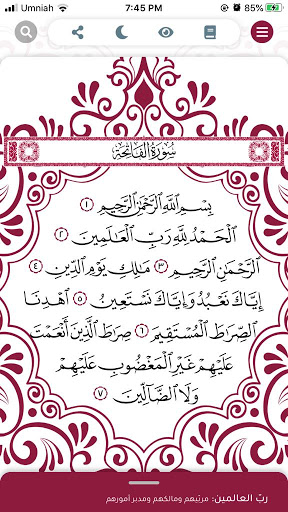 Umniah 7:45 PM 85%
سُورَةُ الفَاتِحَةِ
بِسْمِ ٱللَّهِ ٱلرَّحْمَٰنِ ٱلرَّحِيمِ ١
ٱلْحَمْدُ لِلَّهِ رَبِّ ٱلْعَٰلَمِينَ ٢
ٱلرَّحْمَٰنِ ٱلرَّحِيمِ ٣ مَٰلِكِ يَوْمِ ٱلدِّينِ ٤
إِيَّاكَ نَعْبُدُ وَإِيَّاكَ نَسْتَعِينُ ٥ ٱهْدِنَا
ٱلصِّرَٰطَ ٱلْمُسْتَقِيمَ ٦ صِرَٰطَ ٱلَّذِينَ أَنْعَمْتَ
عَلَيْهِمْ غَيْرِ ٱلْمَغْضُوبِ عَلَيْهِمْ
وَلَا ٱلضَّآلِّينَ ٧
ربّ العالمين: مربّيهم ومالكهم ومدبر أمورهم